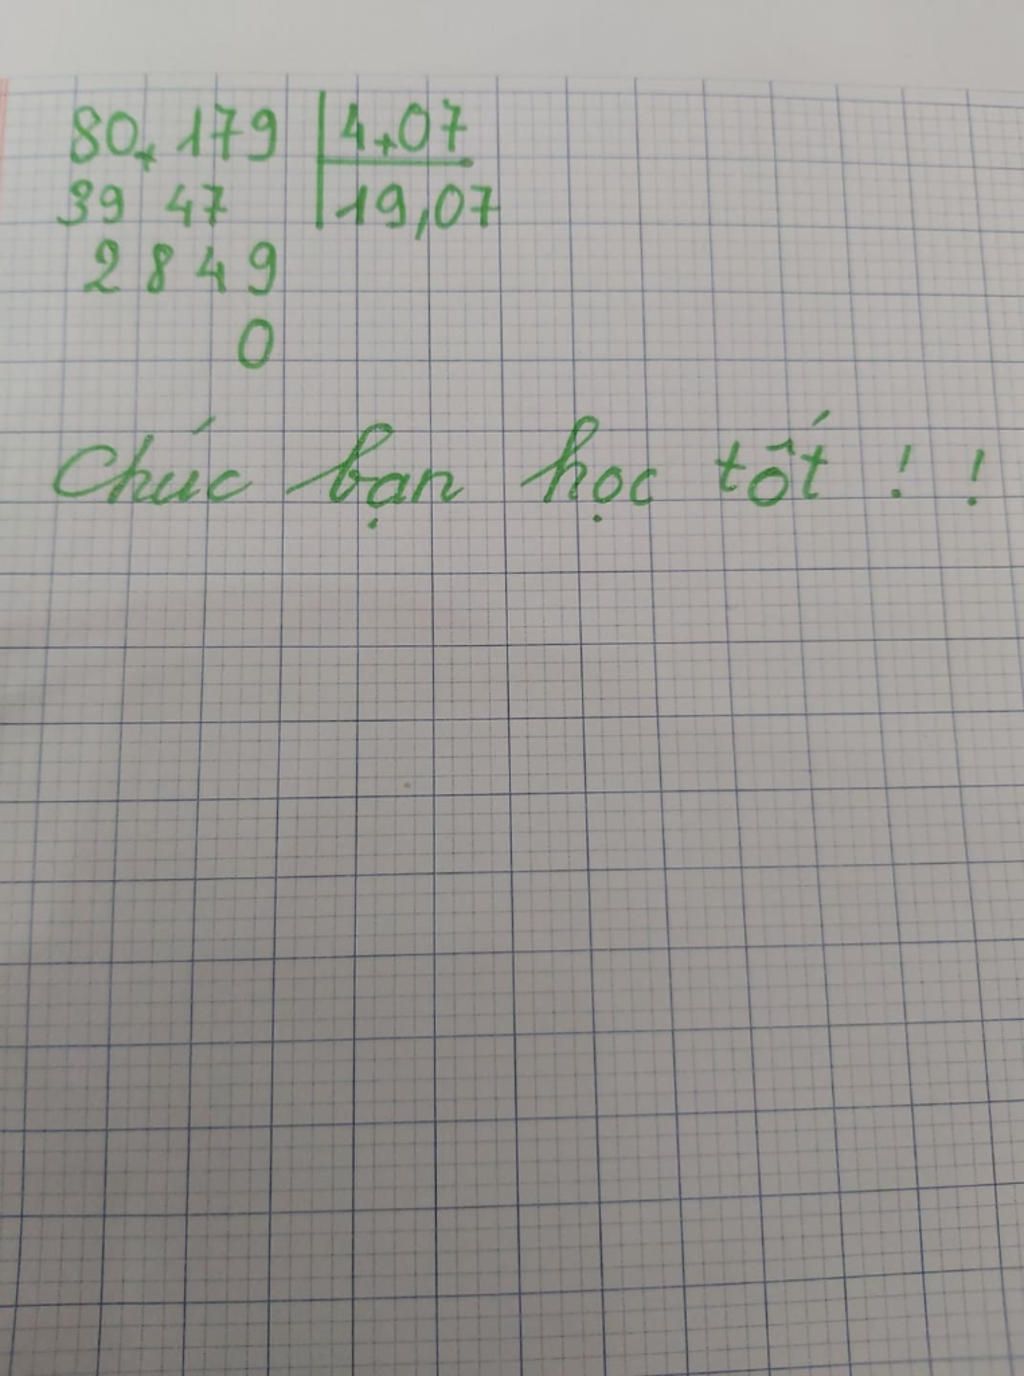 80, 179 | 4,07
39 47 | 19,07
2 8 4 9
0
Chúc bạn học tốt ! !